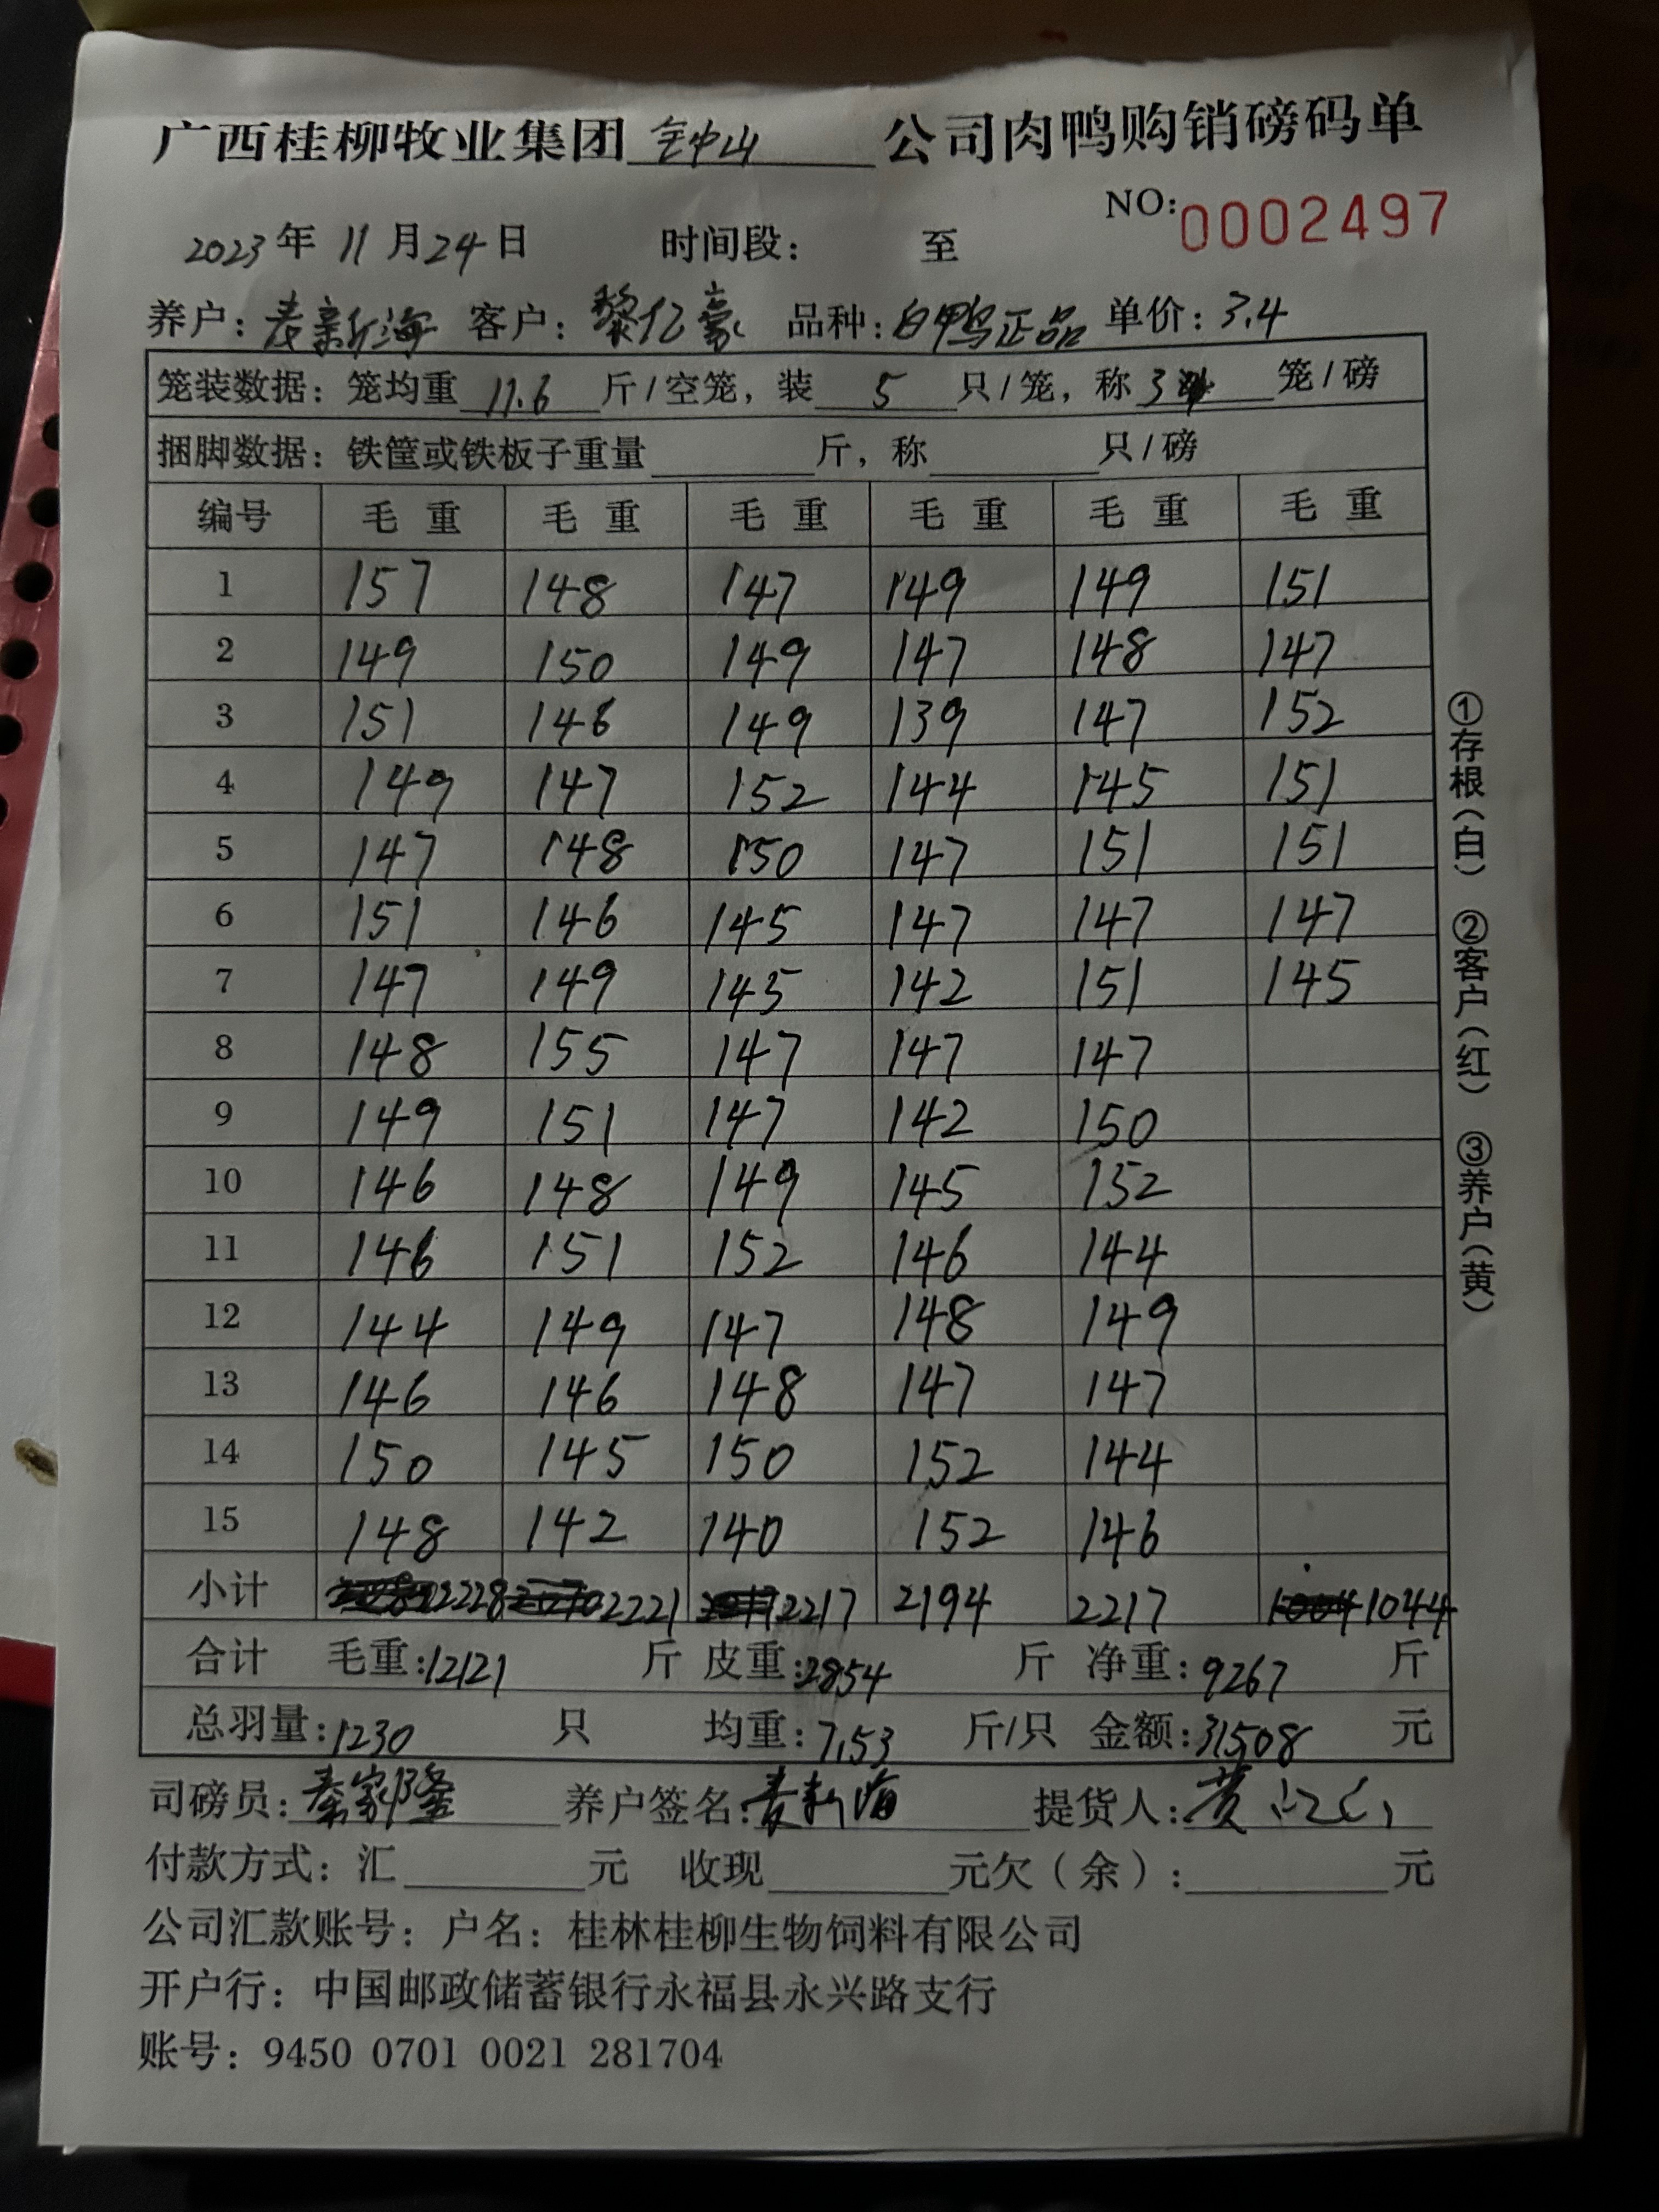 广西桂柳牧业集团 钟山 公司肉鸭购销磅码单
NO:0002497
2023年11月24日 时间段: 至
养户:麦新海 客户:黎亿豪 品种:白鸭正品 单价:3.4
笼装数据:笼均重 11.6 斤/空笼,装 5 只/笼,称 3 笼/磅
捆脚数据:铁筐或铁板子重量 斤,称 只/磅
编号 毛重 毛重 毛重 毛重 毛重 毛重
1 157 148 147 149 149 151
2 149 150 149 147 148 147
3 151 146 149 139 147 152
4 149 147 152 144 145 151
5 147 148 150 147 151 151
6 151 146 145 147 147 147
7 147 149 145 142 151 145
8 148 155 147 147 147
9 149 151 147 142 150
10 146 148 149 145 152
11 146 151 152 146 144
12 144 149 147 148 149
13 146 146 148 147 147
14 150 145 150 152 144
15 148 142 140 152 146
小计 2228 2221 2217 2194 2217 1044
合计 毛重:12121 斤 皮重:2854 斤 净重:9267 斤
总羽量:1230 只 均重:7.53 斤/只 金额:31508 元
司磅员:秦家隆 养户签名:麦新海 提货人:黄
付款方式:汇 元 收现 元欠(余): 元
公司汇款账号:户名:桂林桂柳生物饲料有限公司
开户行:中国邮政储蓄银行永福县永兴路支行
账号:9450 0701 0021 281704
①存根(白) ②客户(红) ③养户(黄)